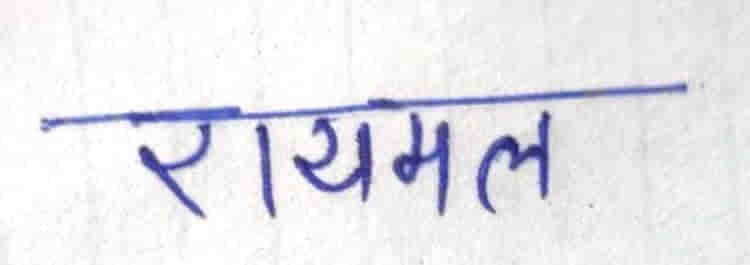 रायमल